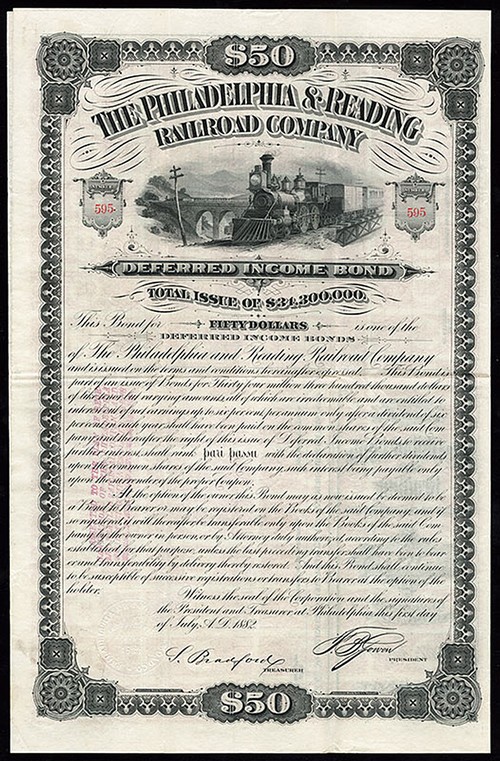 $50
THE PHILADELPHIA & READING
RAILROAD COMPANY
595
595
DEFERRED INCOME BOND
TOTAL ISSUE OF $34,300,000.
This Bond for FIFTY DOLLARS is one of the
DEFERRED INCOME BONDS
of The Philadelphia and Reading Railroad Company
and is issued on the terms and conditions hereafter expressed. This Bond is
part of an issue of Bonds for Thirty four million three hundred thousand dollars
of this tenor but varying amounts, all of which are irredeemable and are entitled to
interest out of net earnings up to six per cent per annum only after a dividend of six
per cent in each year shall have been paid on the common shares of the said Com
pany and thereafter the right of this issue of Deferred Income Bonds to receive
further interest shall rank pari passu with the declaration of further dividends
upon the common shares of the said Company, such interest being payable only
upon the surrender of the proper Coupon.
At the option of the owner this Bond may as now issued be deemed to be
a Bond to Bearer or may be registered on the Books of the said Company, and if
so registered it will thereafter be transferable only upon the Books of the said Com
pany by the owner in person, or by Attorney duly authorized, according to the rules
established for that purpose, unless the last preceding transfer shall have been to bear
er and transferability by delivery thereby restored. And this Bond shall continue
to be susceptible of successive registrations or transfers to Bearer at the option of the
holder.
Witness the seal of the Corporation and the signatures of
the President and Treasurer at Philadelphia this first day
of July, A.D. 1882.
S. Bradford
TREASURER
F B Gowen
PRESIDENT
$50